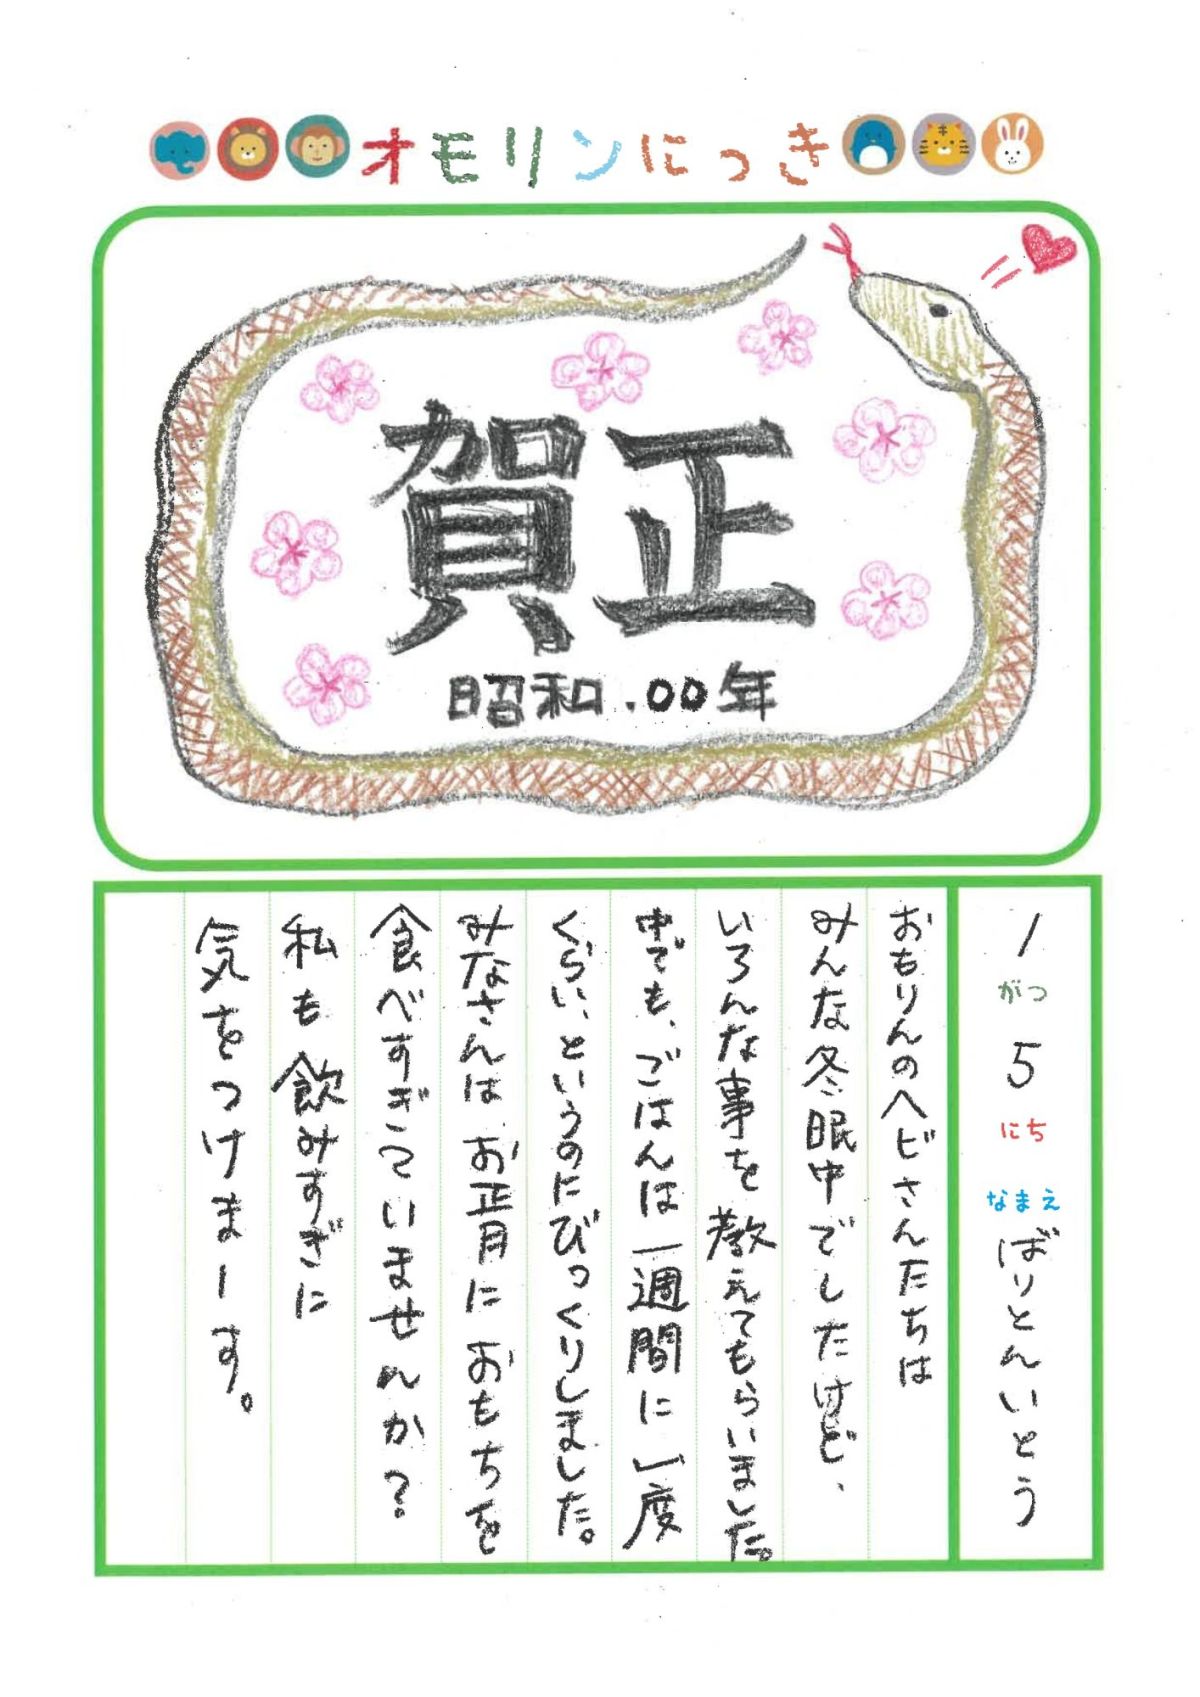 オモリンにっき
賀正
昭和.00年
1がつ5にち なまえ ばりとんいとう
おもりんのヘビさんたちは
みんな冬眠中でしたけど、
いろんな事を教えてもらいました。
中でも、ごはんは一週間に一度
くらい、というのにびっくりしました。
みなさんは お正月に おもちを
食べすぎていませんか？
私も飲みすぎに
気をつけまーす。